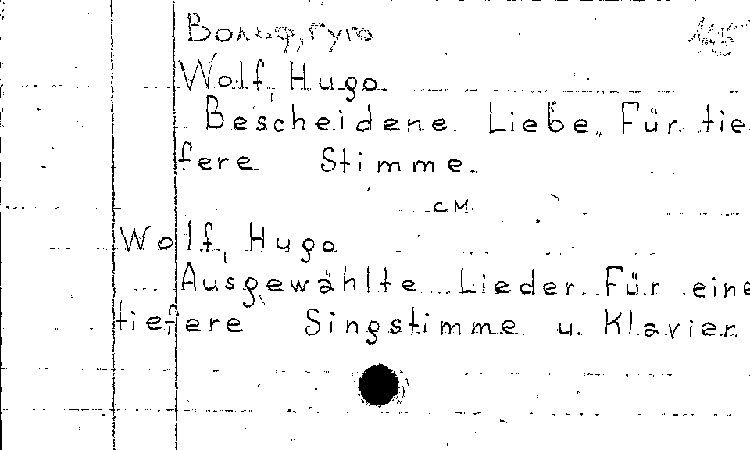 Вольф, Гуго
Wolf, Hugo
Bescheidene Liebe. Für tie
fere Stimme.
см.
Wolf, Hugo
Ausgewählte Lieder. Für eine
tiefere Singstimme u. Klavier.